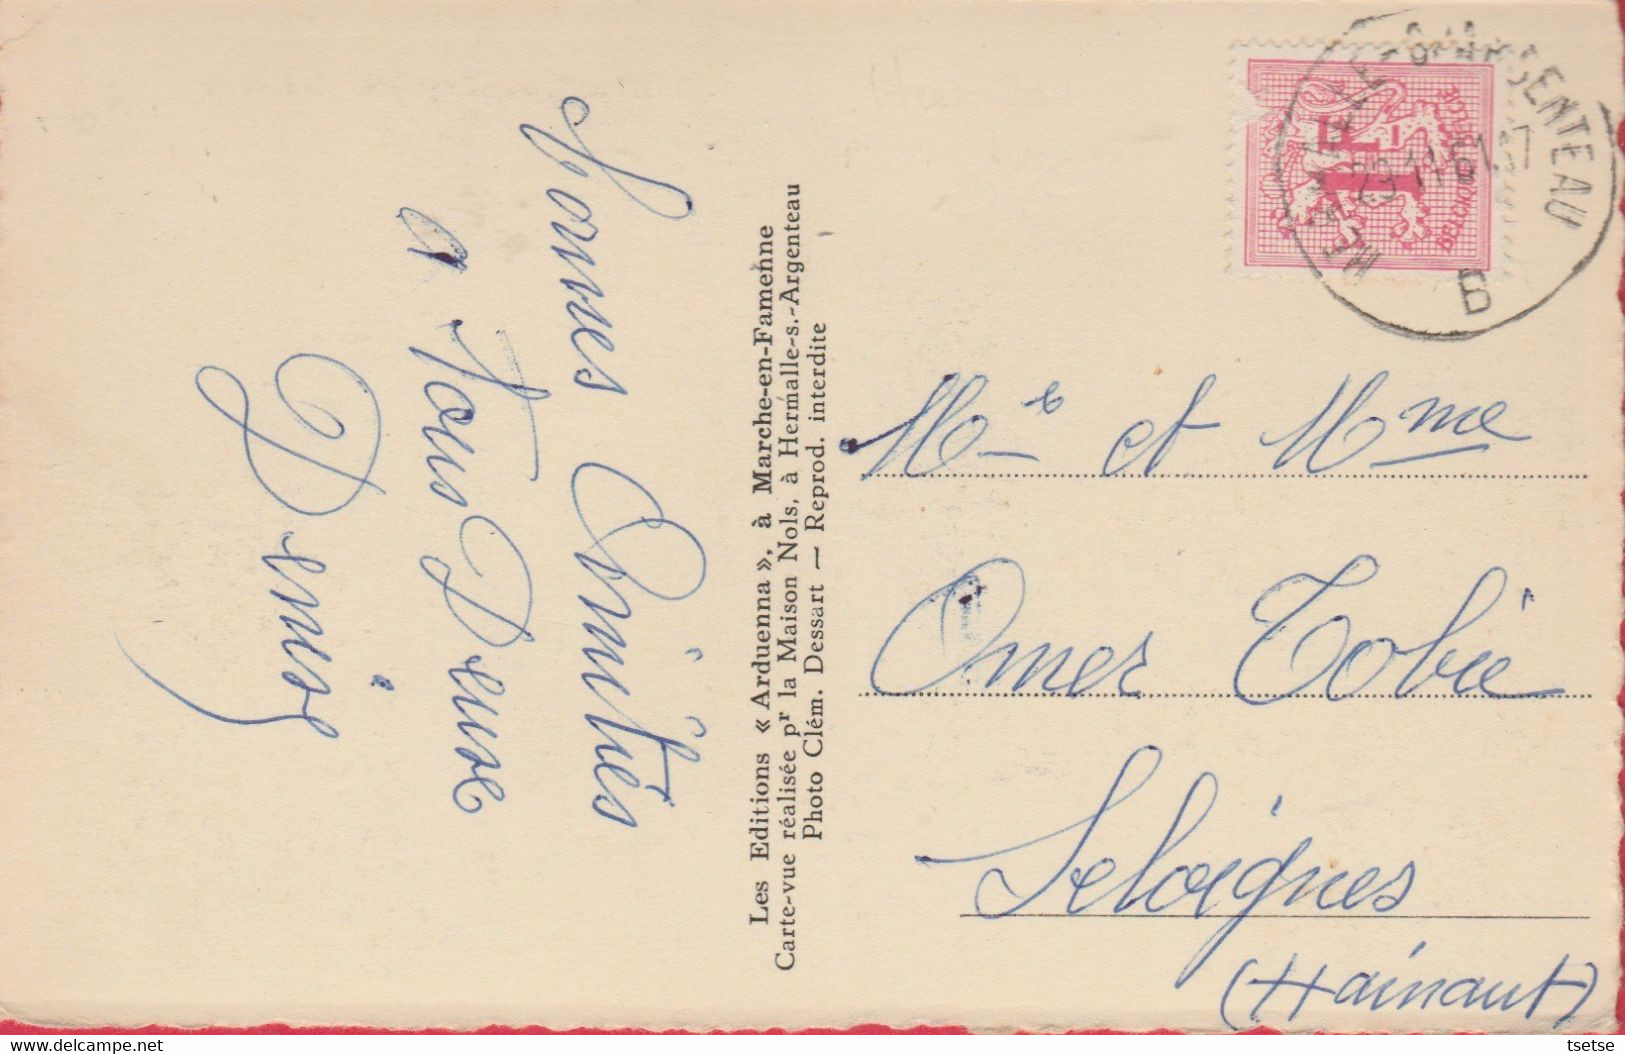 Bonnes Amitiés
a Vous Deux
Denise
Les Editions « Arduenna », à Marche-en-Famenne
Carte-vue réalisée pr la Maison Nols, à Hermalle-s.-Argenteau
Photo Clém. Dessart — Reprod. interdite
HERMALLE-S/ARGENTEAU
B
BELGIQUE-BELGIE
1F
Mr et Mme
Omer Tobie
Seloignes
(Hainaut)
tsetse